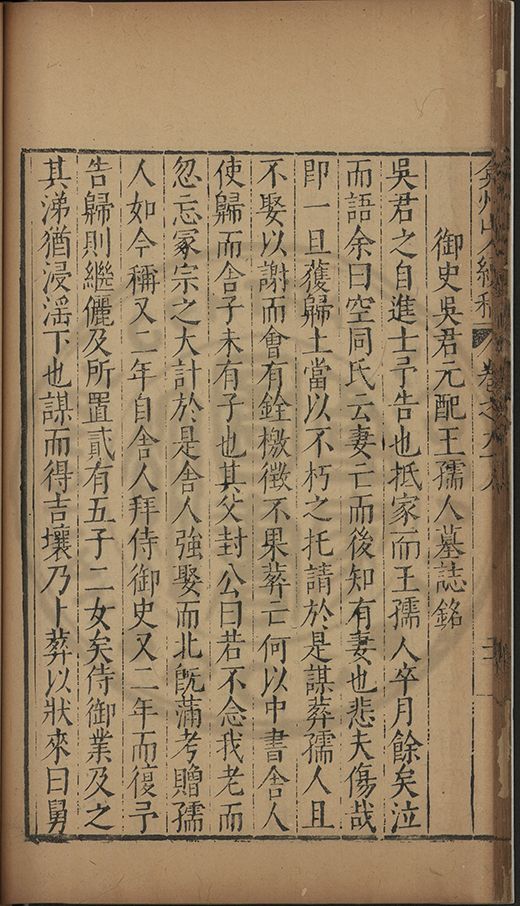 弇州山人續稿 卷之九十八
御史吳君元配王孺人墓誌銘
吳君之自進士予告也抵家而王孺人卒月餘矣泣
而語余曰空同氏云妻亡而後知有妻也悲夫傷哉
即一旦獲歸上當以不朽之托請於是謀葬孺人且
不娶以謝而會有銓檄徵不果葬亡何以中書舍人
使歸而舍子未有子也其父封公曰若不念我老而
忽忘冡宗之大計於是舍人強娶而北旣滿考贈孺
人如今稱又二年自舍人拜侍御史又二年而復予
告歸則繼儷及所置貳有五子二女矣侍御業及之
其涕猶浸淫下也謀而得吉壤乃卜葬以狀來曰舅